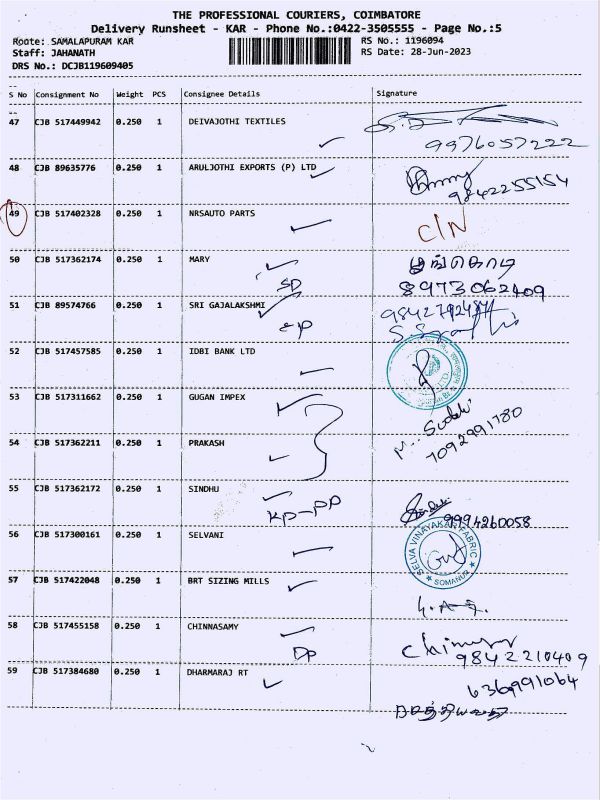 THE PROFESSIONAL COURIERS, COIMBATORE
Delivery Runsheet - KAR - Phone No.:0422-3505555 - Page No.:5
Roote: SAMALAPURAM KAR RS No.: 1196094
Staff: JAHANATH RS Date: 28-Jun-2023
DRS No.: DCJB119609405
S No Consignment No Weight PCS Consignee Details Signature
47 CJB 517449942 0.250 1 DEIVAJOTHI TEXTILES
9976057222
48 CJB 89635776 0.250 1 ARULJOTHI EXPORTS (P) LTD
9842255154
49 CJB 517402328 0.250 1 NRSAUTO PARTS C/N
50 CJB 517362174 0.250 1 MARY பூங்கொடி
SD 8973062409
51 CJB 89574766 0.250 1 SRI GAJALAKSHMI
52 CJB 517457585 0.250 1 IDBI BANK LTD
53 CJB 517311662 0.250 1 GUGAN IMPEX
54 CJB 517362211 0.250 1 PRAKASH 7092991780
55 CJB 517362172 0.250 1 SINDHU
KP-PP 9994260058
56 CJB 517300161 0.250 1 SELVANI SELVA VINAYAKAR FABRIC
SOMANUR
57 CJB 517422048 0.250 1 BRT SIZING MILLS
58 CJB 517455158 0.250 1 CHINNASAMY
DP 9842210409
59 CJB 517384680 0.250 1 DHARMARAJ RT 6369991064